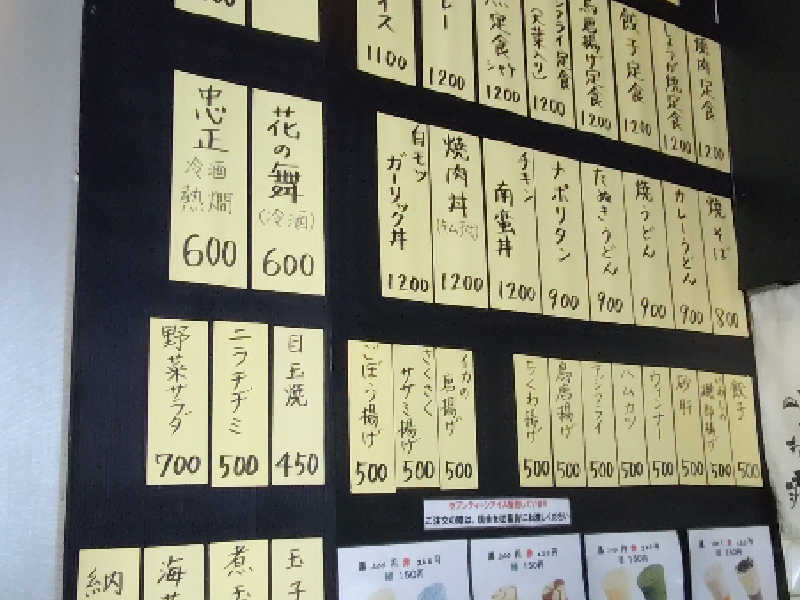 1100
1200
定食
1200
1200
鳥馬揚げ定食
1200
餃子定食
1200
しょうが焼定食
1200
焼肉定食
1200
忠正
冷酒
熱燗
600
花の舞
(冷酒)
600
白モツ
ガーリック丼
1200
焼肉丼
1200
チキン
南蛮丼
1200
ナポリタン
900
たぬきうどん
900
焼うどん
900
カレーうどん
900
焼そば
800
野菜サラダ
700
ニラチヂミ
500
目玉焼
450
ごぼう揚げ
500
さくさく
サザミ揚げ
500
イカの
鳥揚げ
500
ちくわ揚げ
500
鳥馬揚げ
500
アジフライ
500
ハムカツ
500
ウィンナー
500
砂肝
500
磯部揚げ
500
餃子
500
セブンティーンアイス
ご注文の際は、現金を従業員にお渡しください
納
海
煮玉
玉子
150円
150円
150円
150円